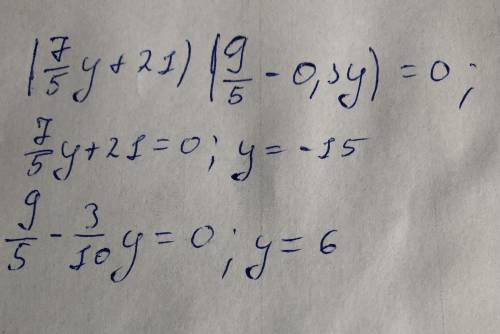 (7/5 y + 21) (9/5 - 0,3y) = 0;
7/5 y + 21 = 0; y = -15
9/5 - 3/10 y = 0; y = 6